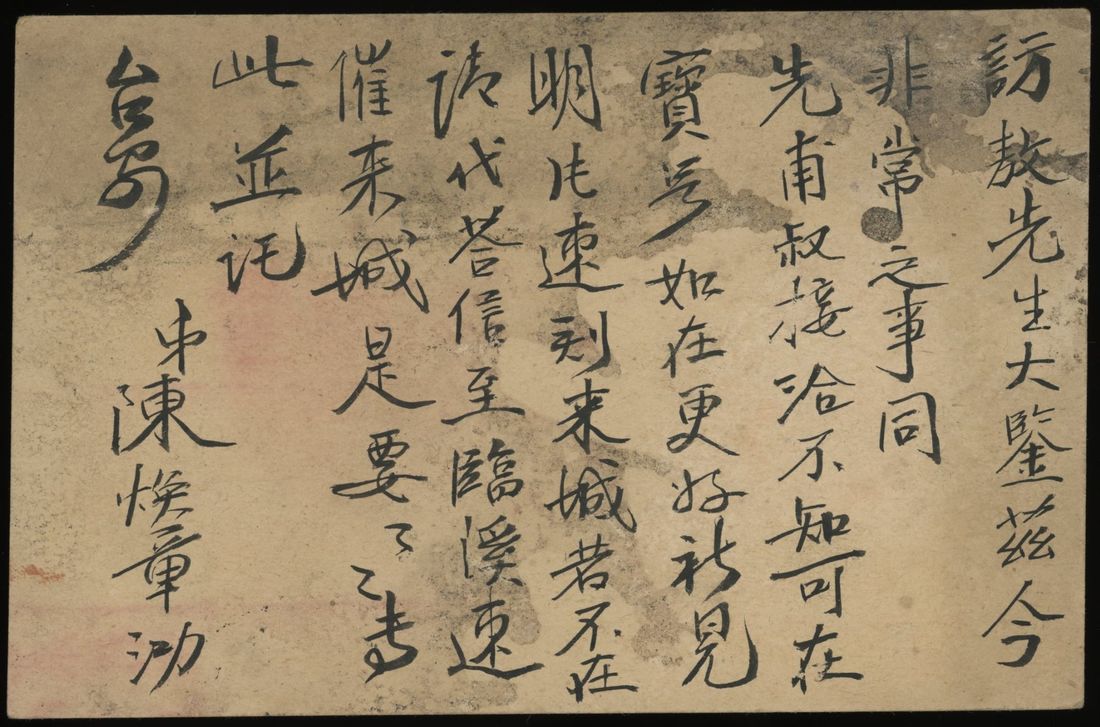 訪敖先生大鑒茲今
非常之事同
先甫叔接洽不知可在
寶号如在更好祈見
明片速刻来城若不在
請代荅信至臨溪速
催来城是要々々专
此並託
台安
弟陳煥章泐